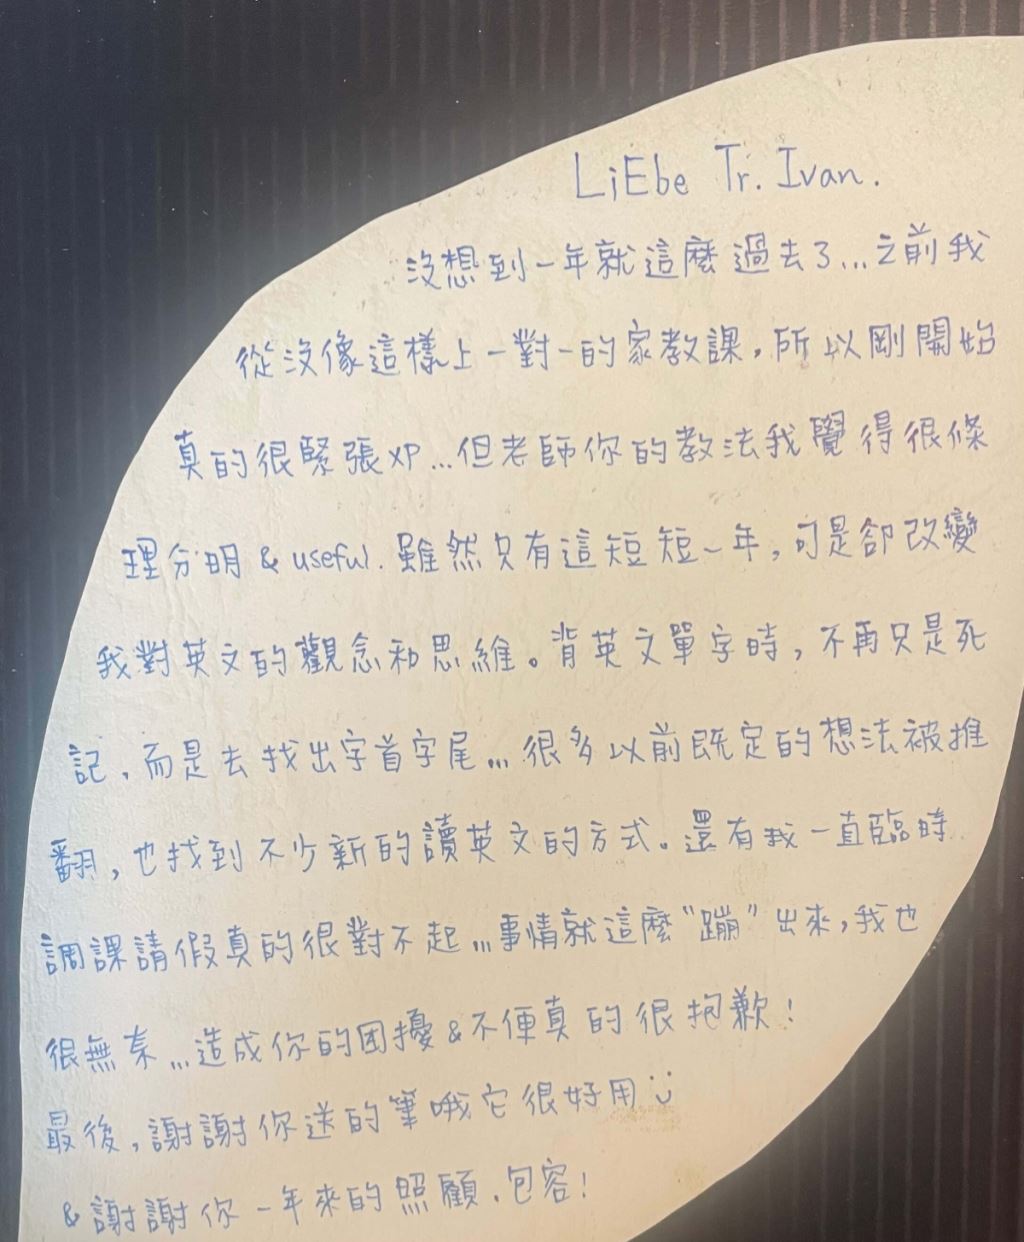 LiEbe Tr. Ivan.
沒想到一年就這麼過去了...之前我
從沒像這樣上一對一的家教課,所以剛開始
真的很緊張XP...但老師你的教法我覺得很條
理分明 & useful. 雖然只有這短短一年,可是卻改變
我對英文的觀念和思維。背英文單字時,不再只是死
記、而是去找出字首字尾...很多以前既定的想法被推
翻,也找到不少新的讀英文的方式。還有我一直臨時
調課請假真的很對不起...事情就這麼"蹦"出來,我也
很無奈...造成你的困擾&不便真的很抱歉!
最後,謝謝你送的筆哦它很好用:)
& 謝謝你一年來的照顧、包容!